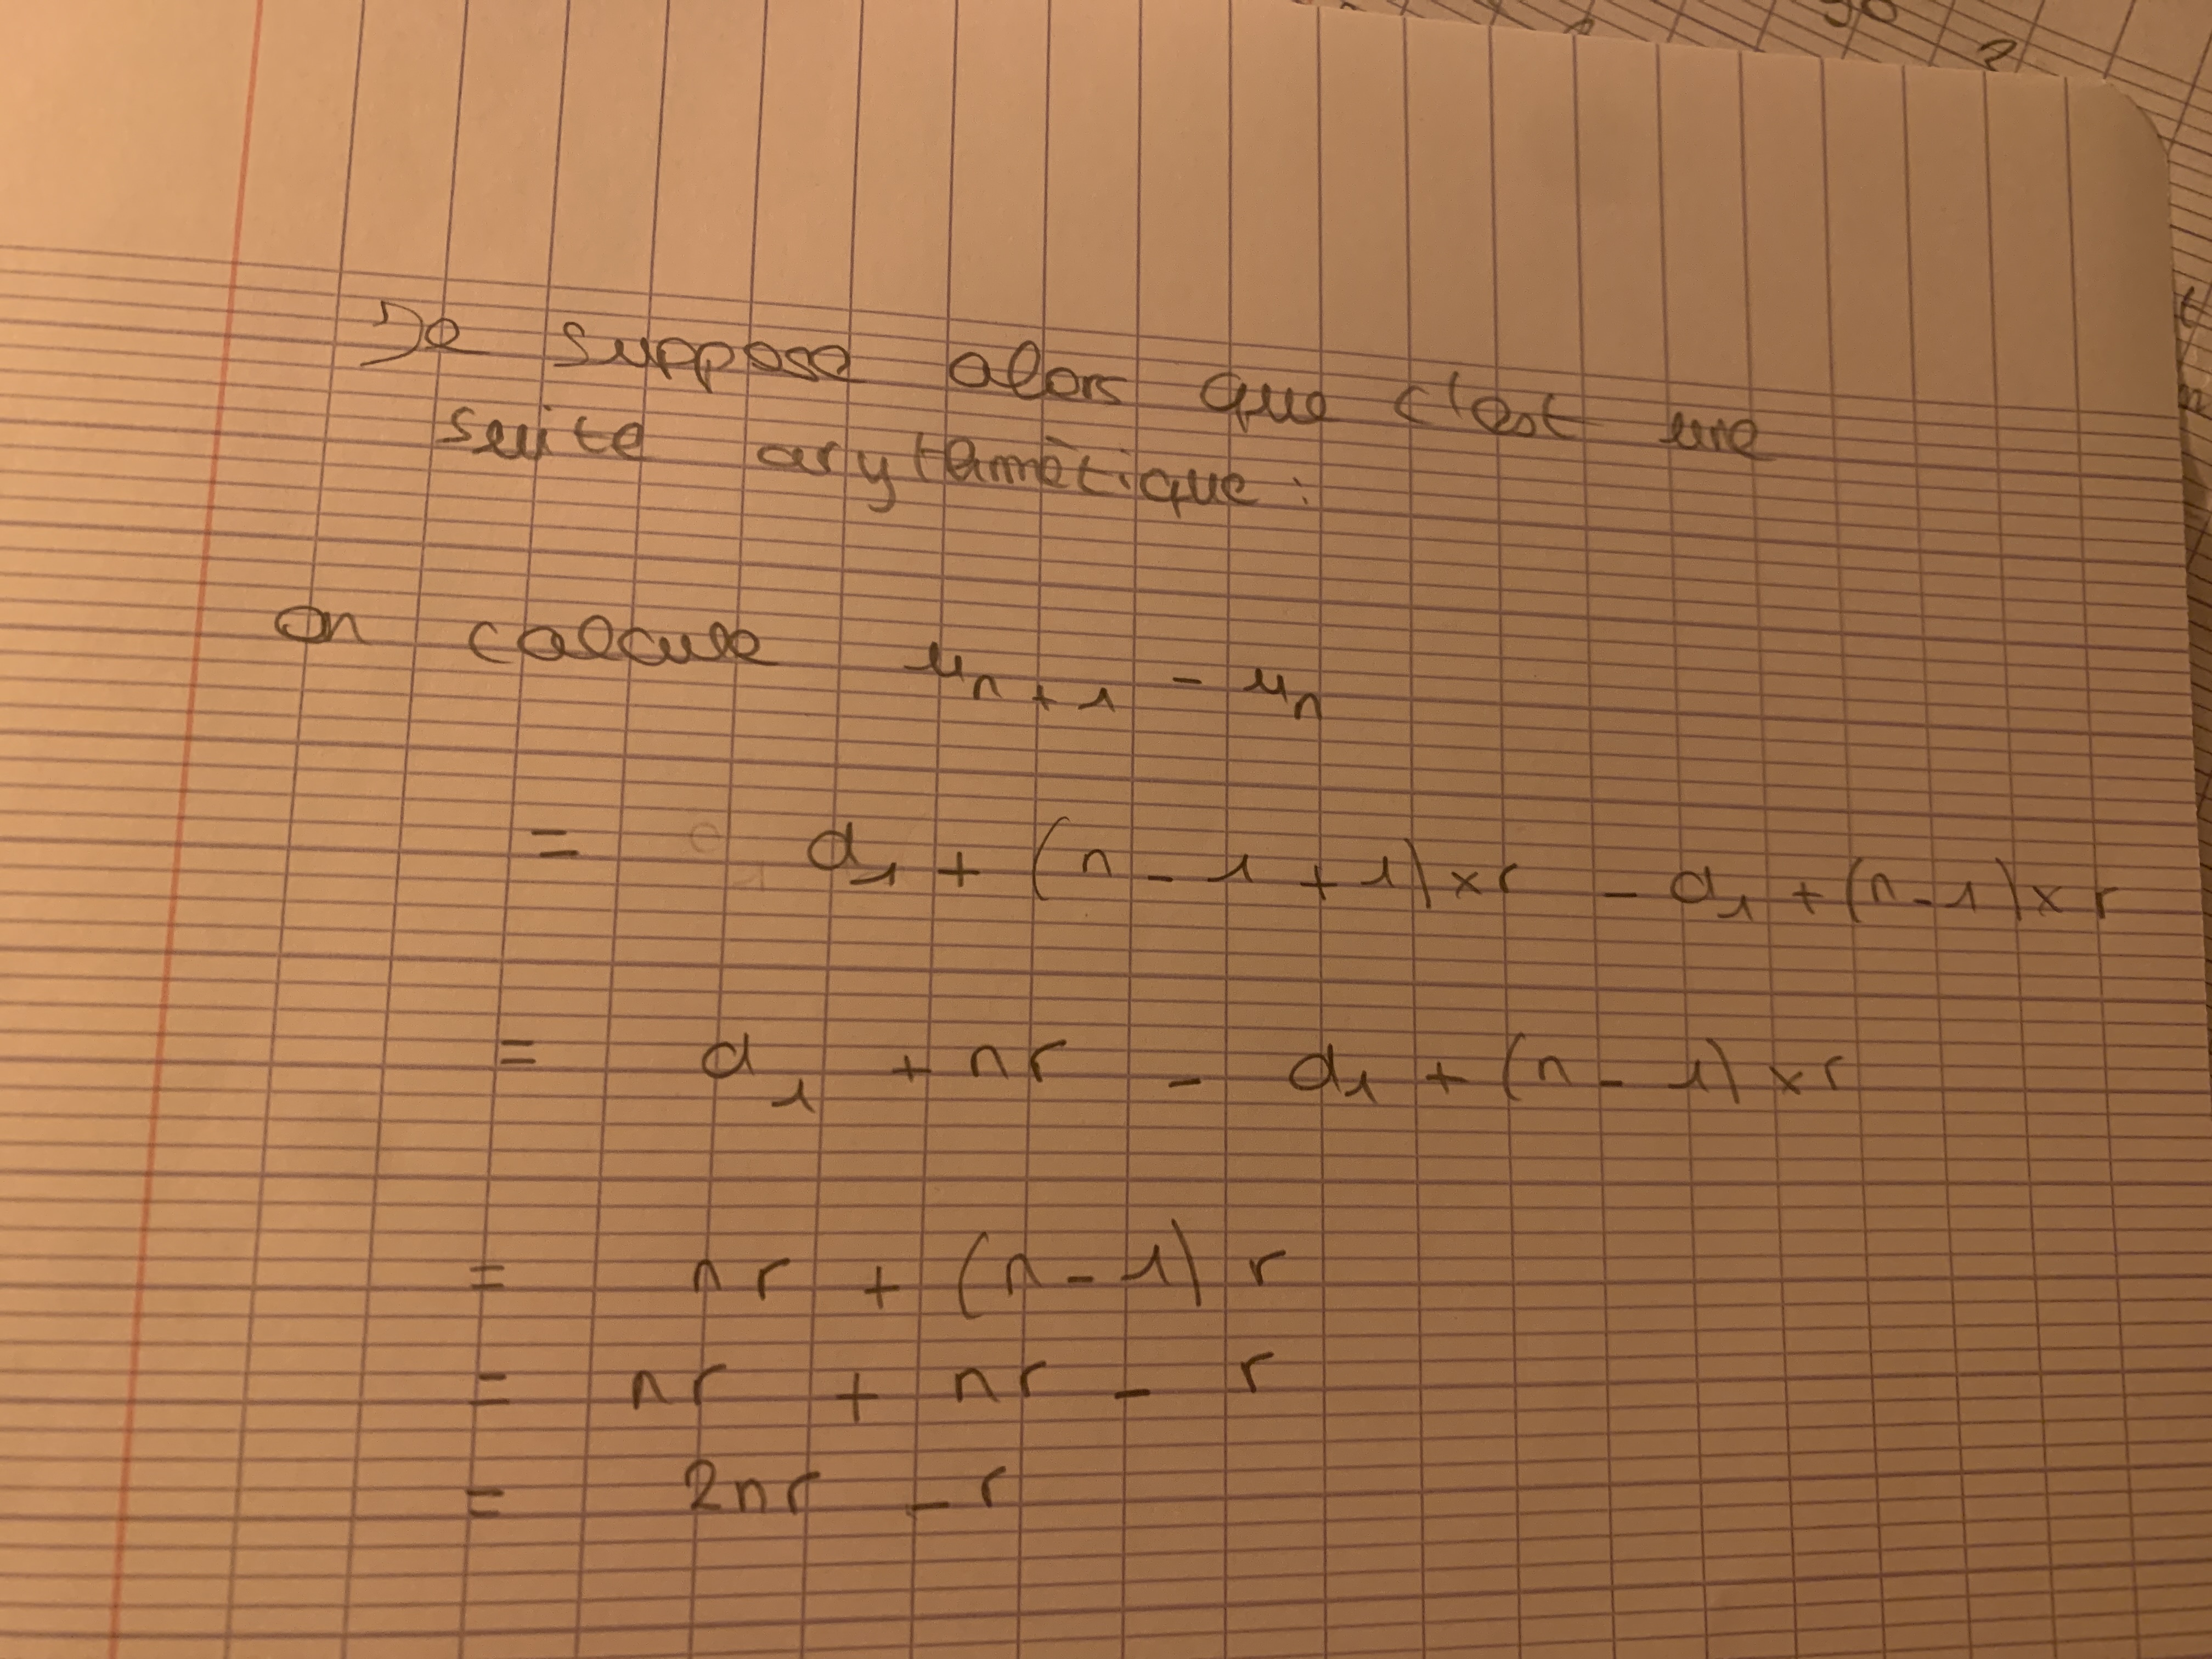 Je suppose alors que c'est une
suite arytémètique :
On calcule u_{n+1} - u_n
= d_1 + (n - 1 + 1) × r - d_1 + (n - 1) × r
= d_1 + nr - d_1 + (n - 1) × r
= nr + (n - 1) r
= nr + nr - r
= 2nr - r